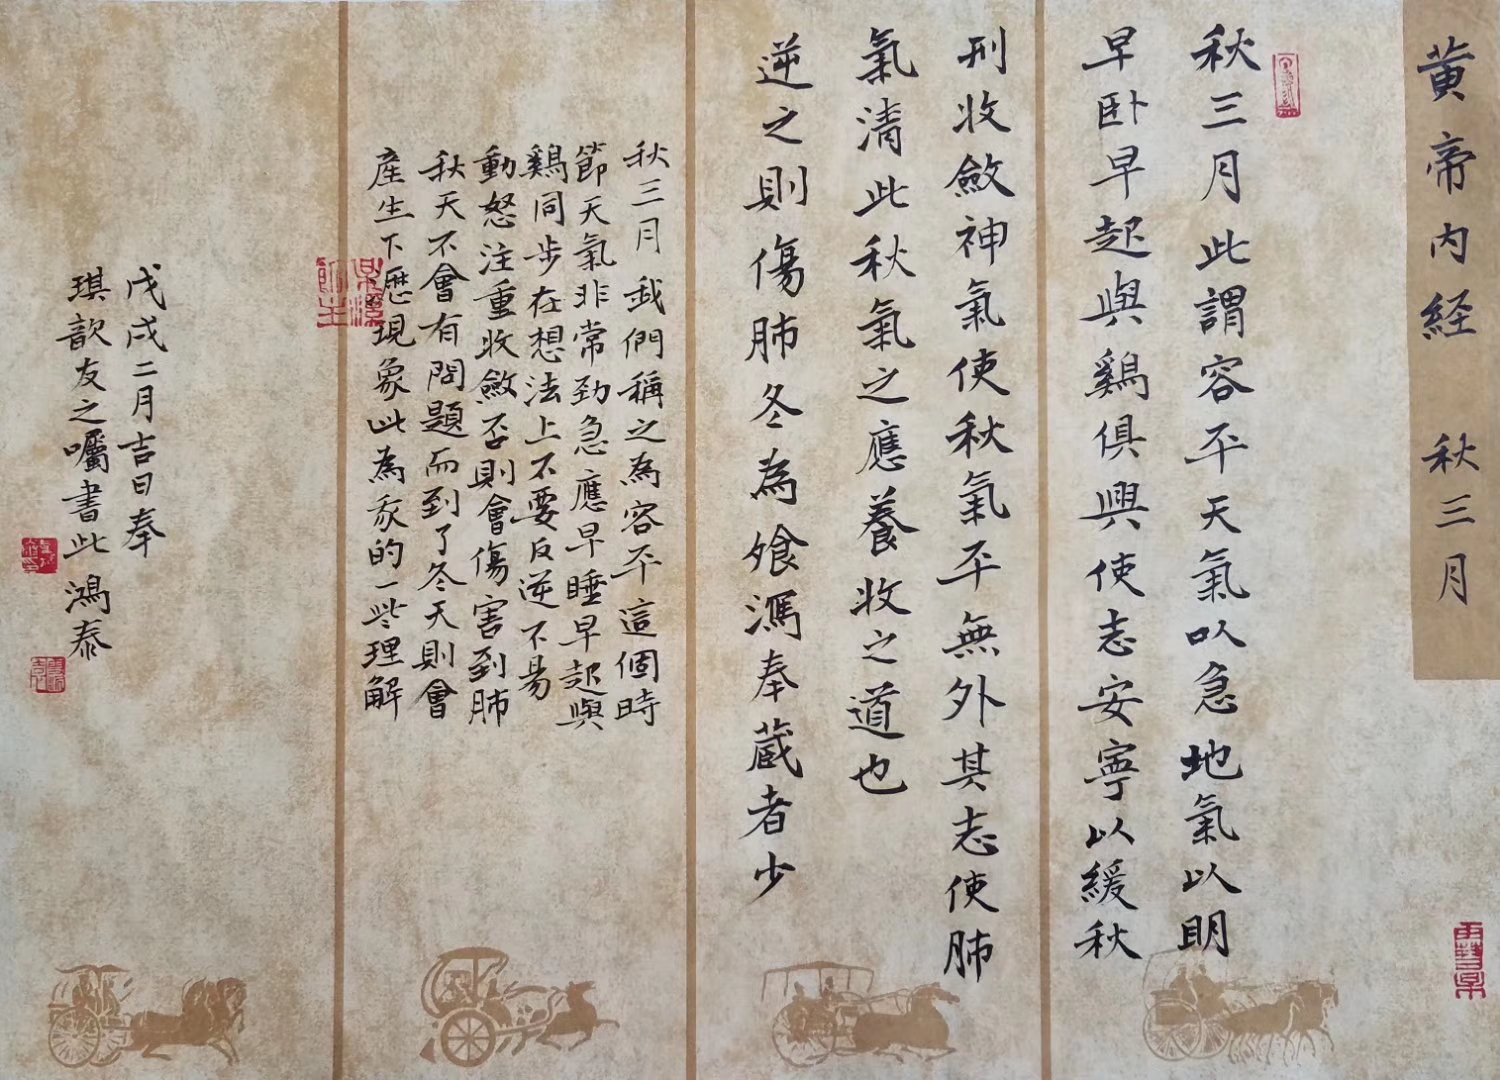 黄帝内経 秋三月
秋三月此謂容平天氣以急地氣以明
早卧早起與鷄俱興使志安寧以緩秋
刑收斂神氣使秋氣平無外其志使肺
氣清此秋氣之應養收之道也
逆之則傷肺冬為飧瀉奉蔵者少
秋三月我們稱之為容平這個時
節天氣非常勁急應早睡早起與
鷄同步在想法上不要反逆不易
動怒注重收斂否則會傷害到肺
秋天不會有問題而到了冬天則會
産生下歷現象此為我的一些理解
戊戌二月吉日奉
琪歆友之囑書此鴻泰